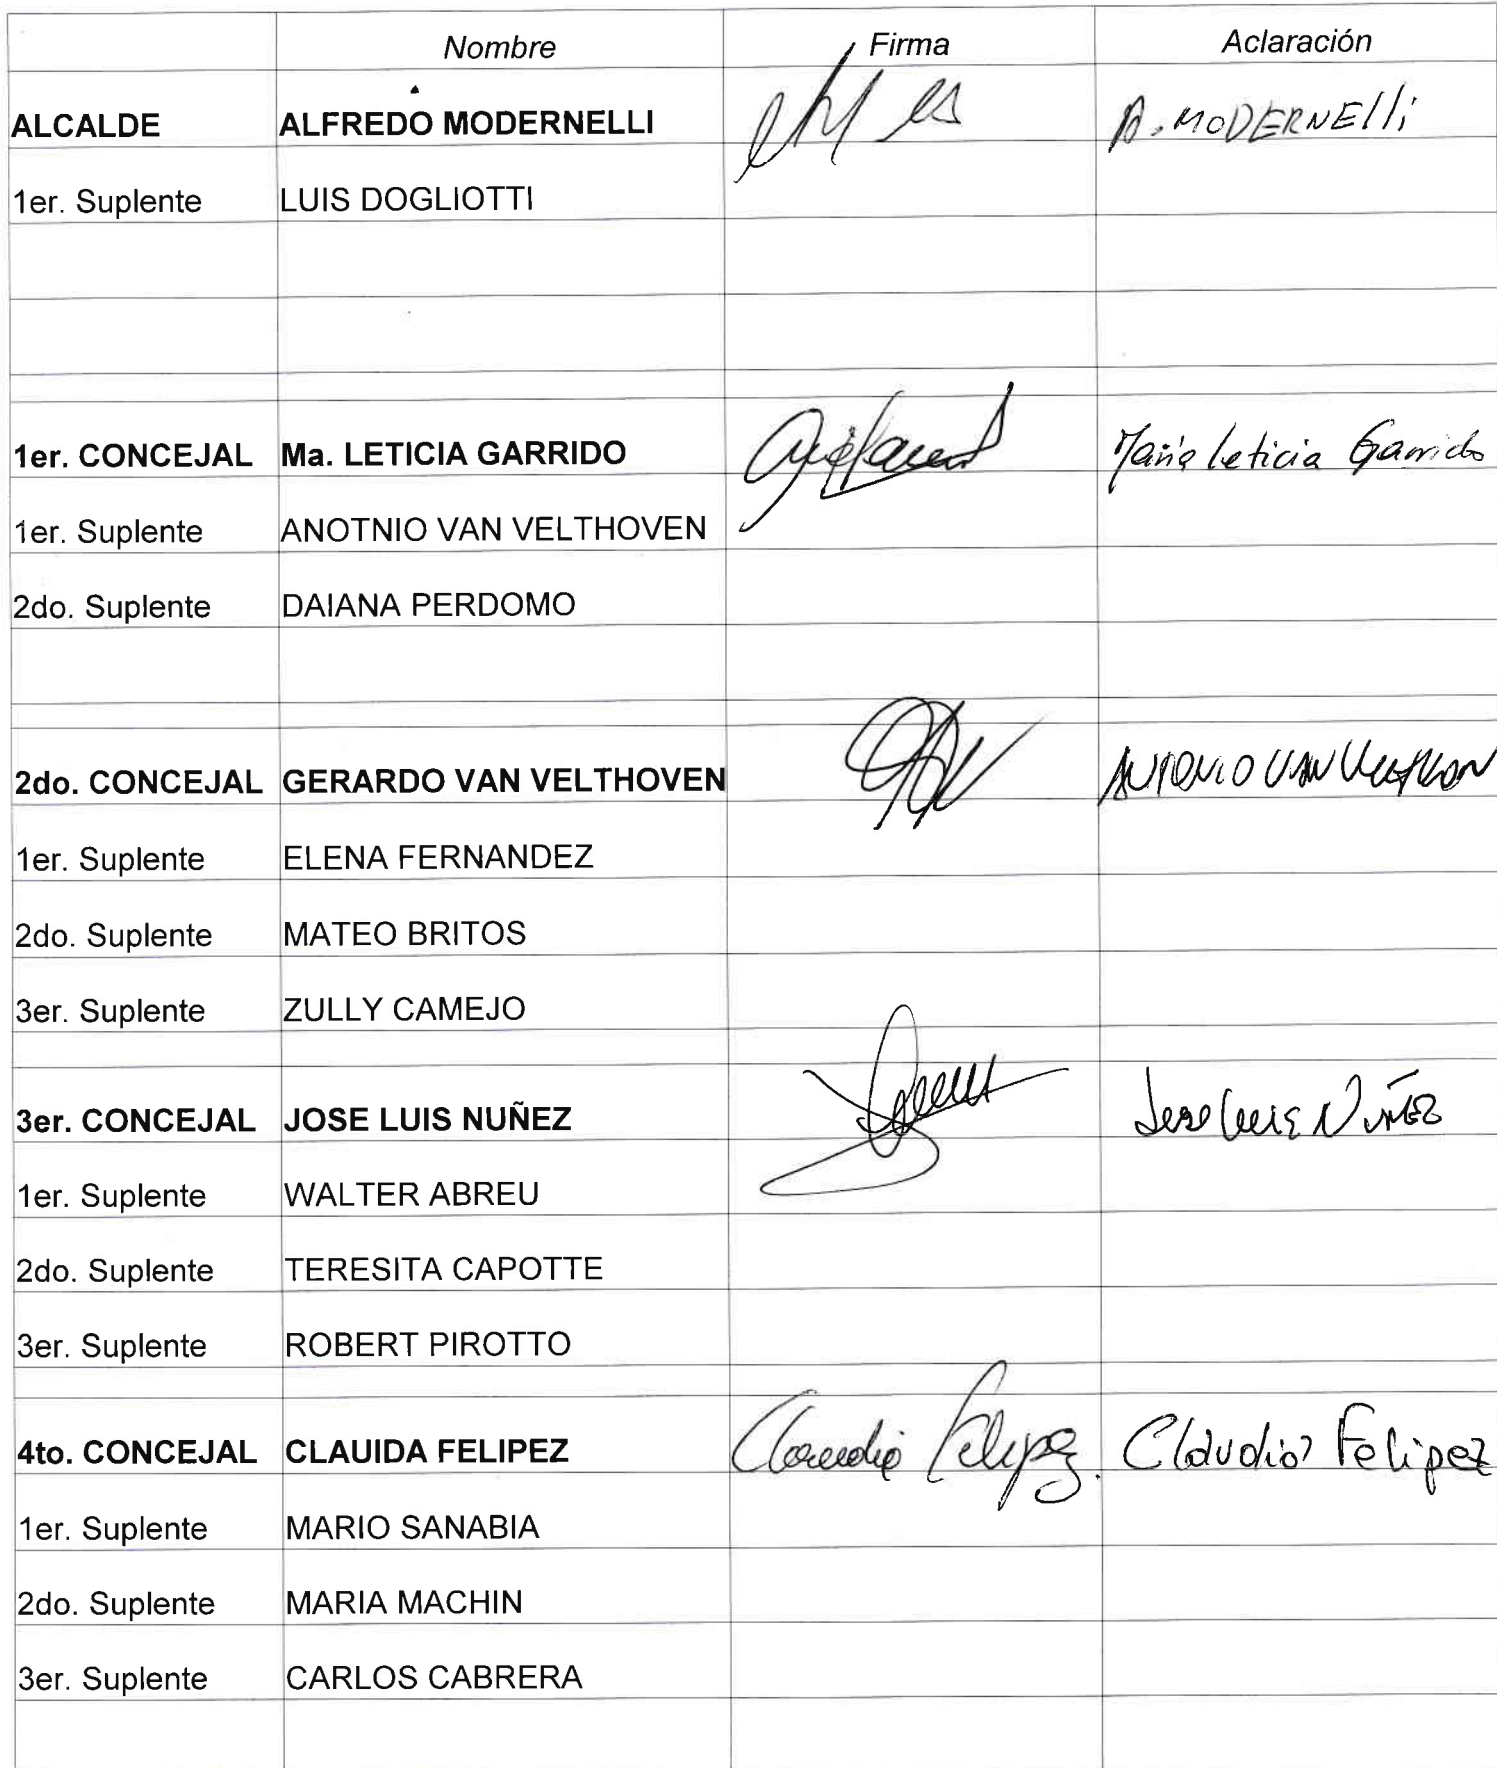 Nombre Firma Aclaración
ALCALDE ALFREDO MODERNELLI A. MODERNElli
1er. Suplente LUIS DOGLIOTTI
1er. CONCEJAL Ma. LETICIA GARRIDO María Leticia Garrido
1er. Suplente ANOTNIO VAN VELTHOVEN
2do. Suplente DAIANA PERDOMO
2do. CONCEJAL GERARDO VAN VELTHOVEN ANTONIO VAN
1er. Suplente ELENA FERNANDEZ
2do. Suplente MATEO BRITOS
3er. Suplente ZULLY CAMEJO
3er. CONCEJAL JOSE LUIS NUÑEZ Jose Luis NUÑEZ
1er. Suplente WALTER ABREU
2do. Suplente TERESITA CAPOTTE
3er. Suplente ROBERT PIROTTO
4to. CONCEJAL CLAUIDA FELIPEZ Claudia Felipez. Claudia Felipez
1er. Suplente MARIO SANABIA
2do. Suplente MARIA MACHIN
3er. Suplente CARLOS CABRERA